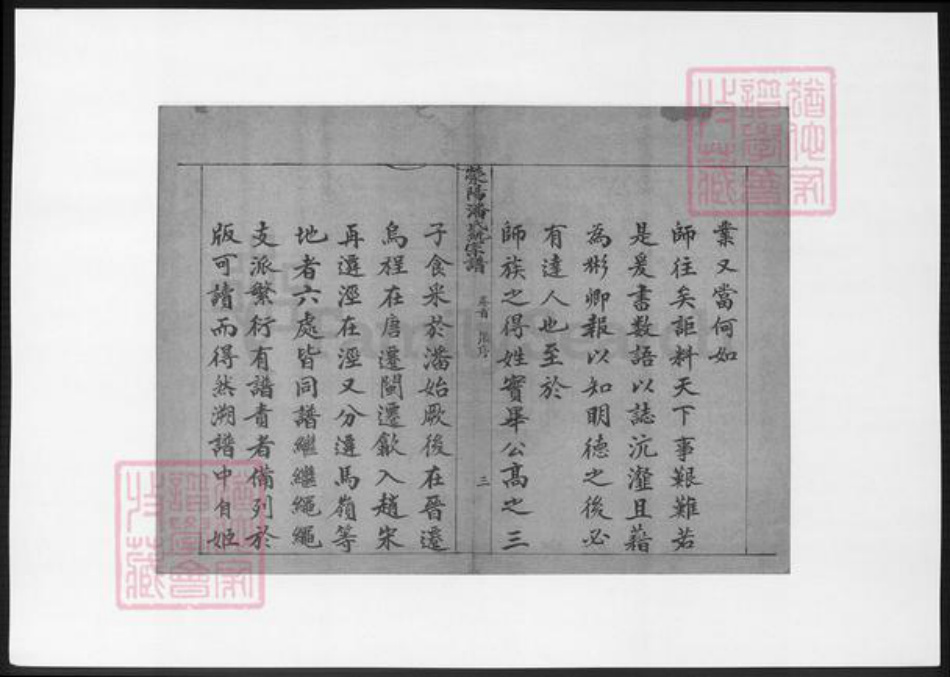 業又當何如
師往矣詎料天下事艱難若
是爰書數語以誌沆瀣且藉
為彬卿報以知明德之後必
有達人也至於
師族之得姓實畢公高之三
滎陽潘氏統宗譜
卷首
三
子食采於潘始厥後在晉遷
烏程在唐遷閩遷歙入趙宋
再遷涇在涇又分遷馬嶺等
地者六處皆同譜繼繼繩繩
支派繁衍有譜責者備列於
版可讀而得然溯譜中自姬
譜學會
收藏